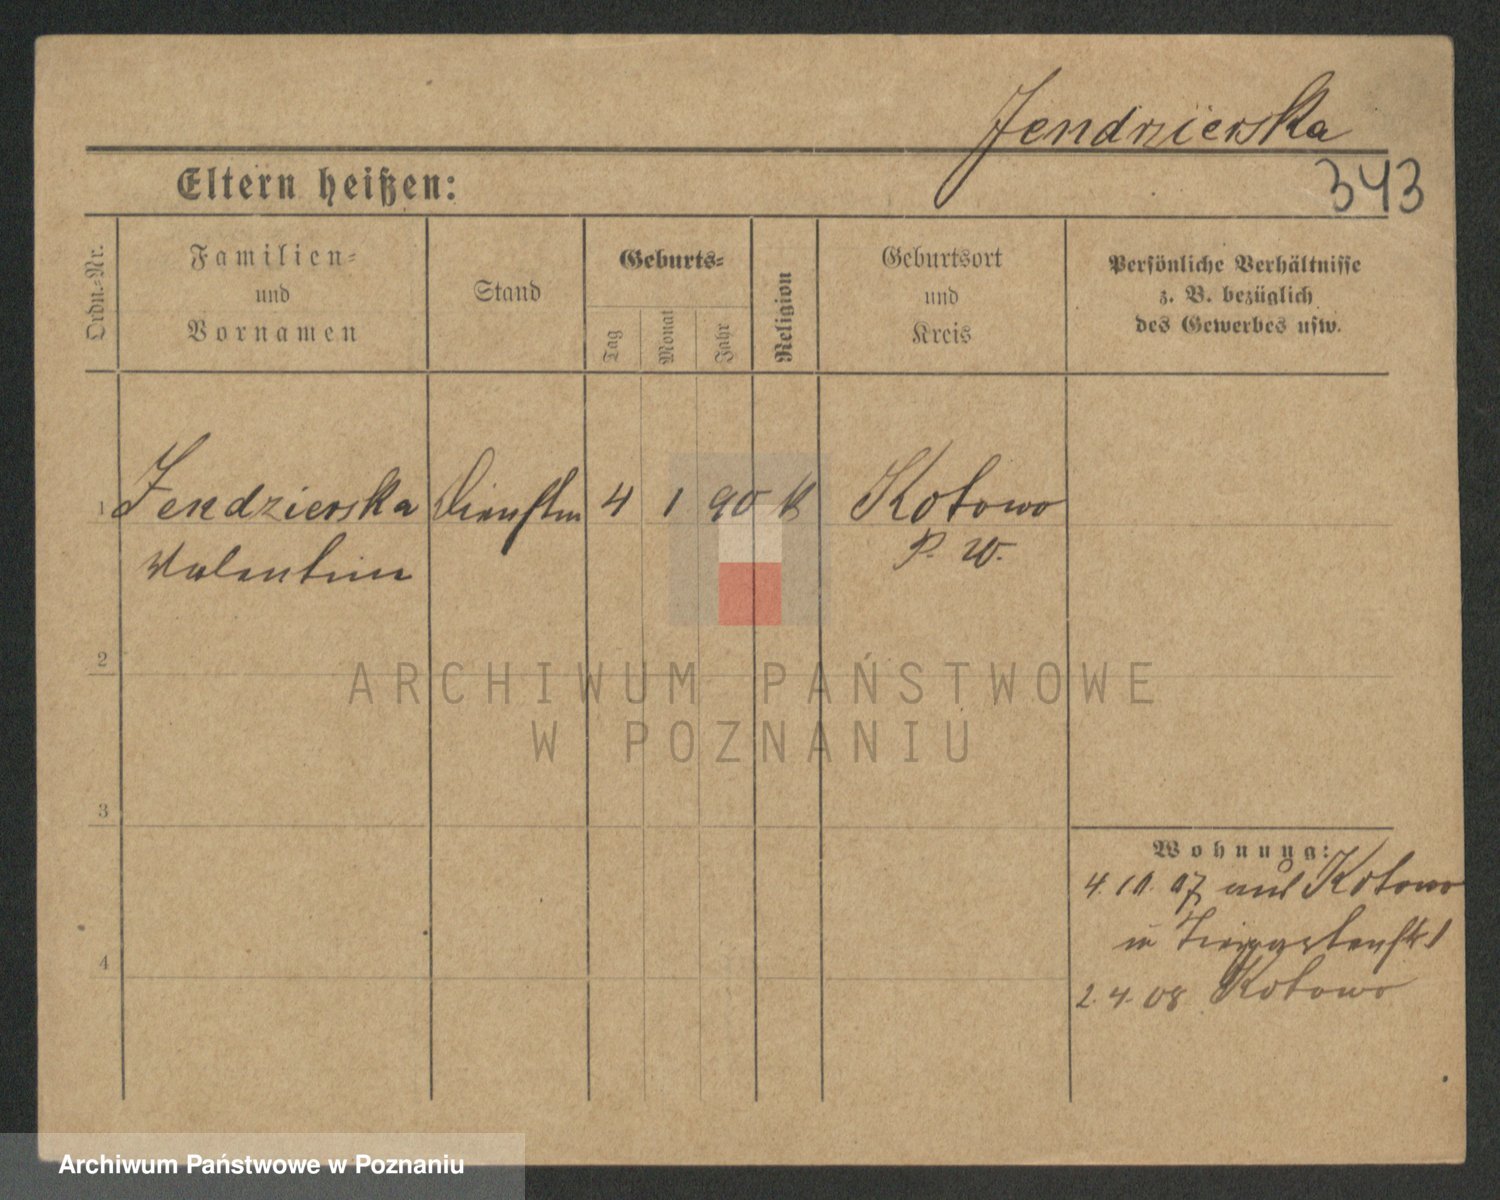 Jendzierska
343
Eltern heißen:
Ordn.-Nr.
Familien-
und
Vornamen
Stand
Geburts-
Tag
Monat
Jahr
Religion
Geburtsort
und
Kreis
Persönliche Verhältnisse
z. B. bezüglich
des Gewerbes usw.
1 Jendzierska Dienstm 4 1 90 k Kotowo
Valentine P. W.
2
3
4
Wohnung:
4. 10. 07 aus Kotowo
in Tiergartenstr. 1
2. 4. 08 Kotowo
ARCHIWUM PAŃSTWOWE
W POZNANIU
Archiwum Państwowe w Poznaniu